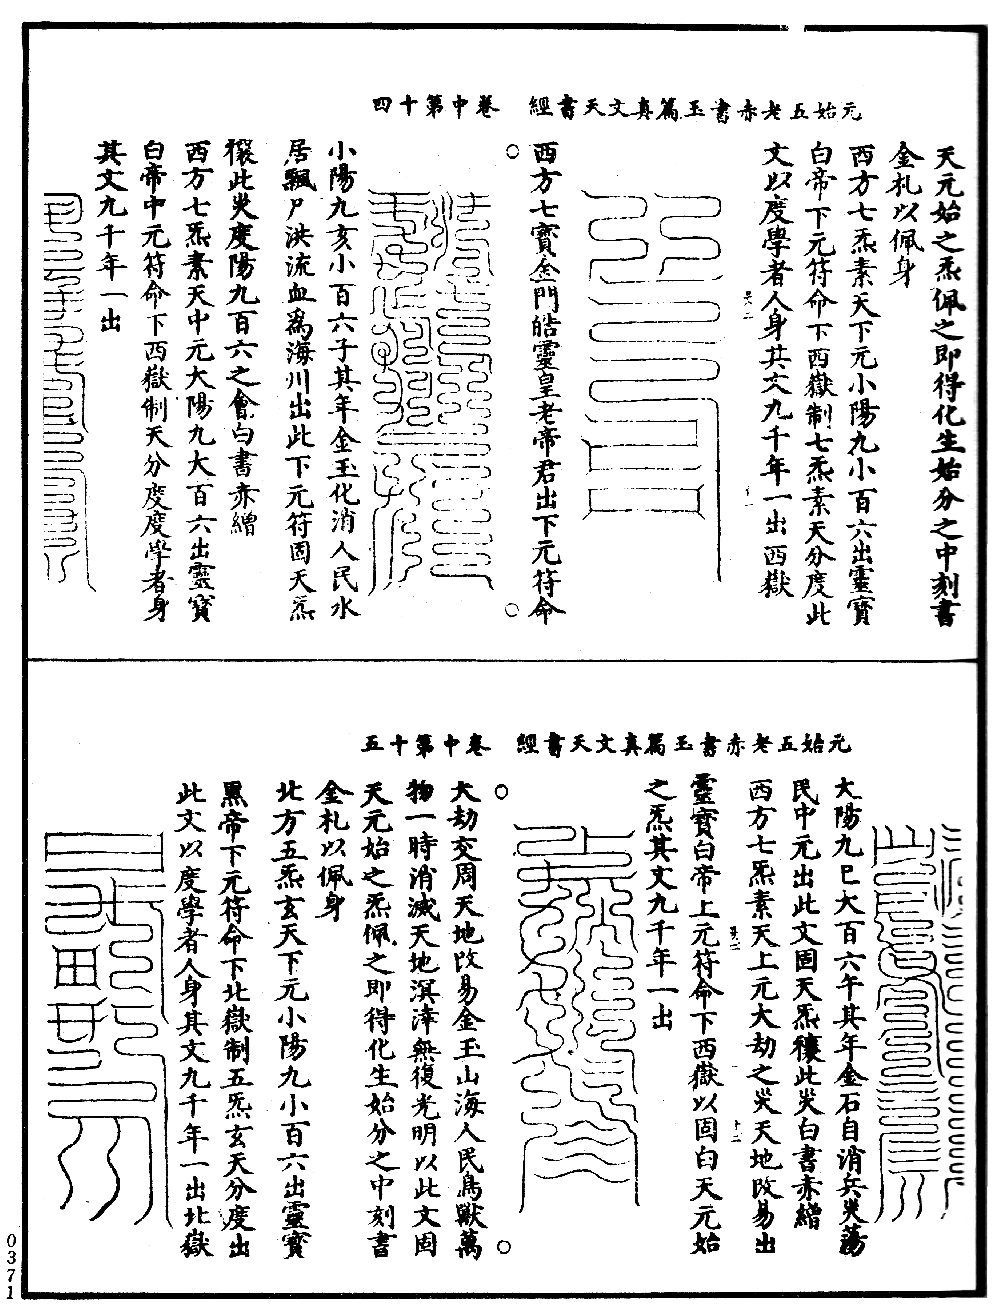 元始五老赤書玉篇真文天書經　卷中第十四
天元始之炁佩之即得化生始分之中刻書
金札以佩身
西方七炁素天下元小陽九小百六出靈寶
白帝下元符命下西嶽制七炁素天分度此
文以度學者人身其文九千年一出西嶽
西方七寶金門皓靈皇老帝君出下元符命
小陽九亥小百六子其年金玉化消人民水
居飄尸洪流血為海川出此下元符固天炁
穰此災度陽九百六之會白書赤繒
西方七炁素天中元大陽九大百六出靈寶
白帝中元符命下西嶽制天分度度學者身
其文九千年一出
元始五老赤書玉篇真文天書經　卷中第十五
大陽九巳大百六午其年金石自消兵災蕩
民中元出此文固天炁穰此災白書赤繒
西方七炁素天上元大劫之災天地改易出
靈寶白帝上元符命下西嶽以固白天元始
之炁其文九千年一出
大劫交周天地改易金玉山海人民鳥獸萬
物一時消滅天地溟涬無復光明以此文固
天元始之炁佩之即得化生始分之中刻書
金札以佩身
北方五炁玄天下元小陽九小百六出靈寶
黑帝下元符命下北嶽制五炁玄天分度出
此文以度學者人身其文九千年一出北嶽
0371